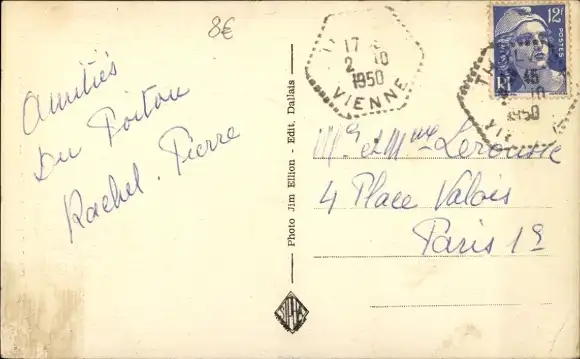 8€
Amitiés
Du Poitou
Rachel. Pierre
Photo Jim Ellion - Edit. Dallais
17
2 10
1950
VIENNE
12F
POSTES
RF
TH
45
10
1950
VI
Mr et Mme Lerousse
4 Place Valois
Paris 1e